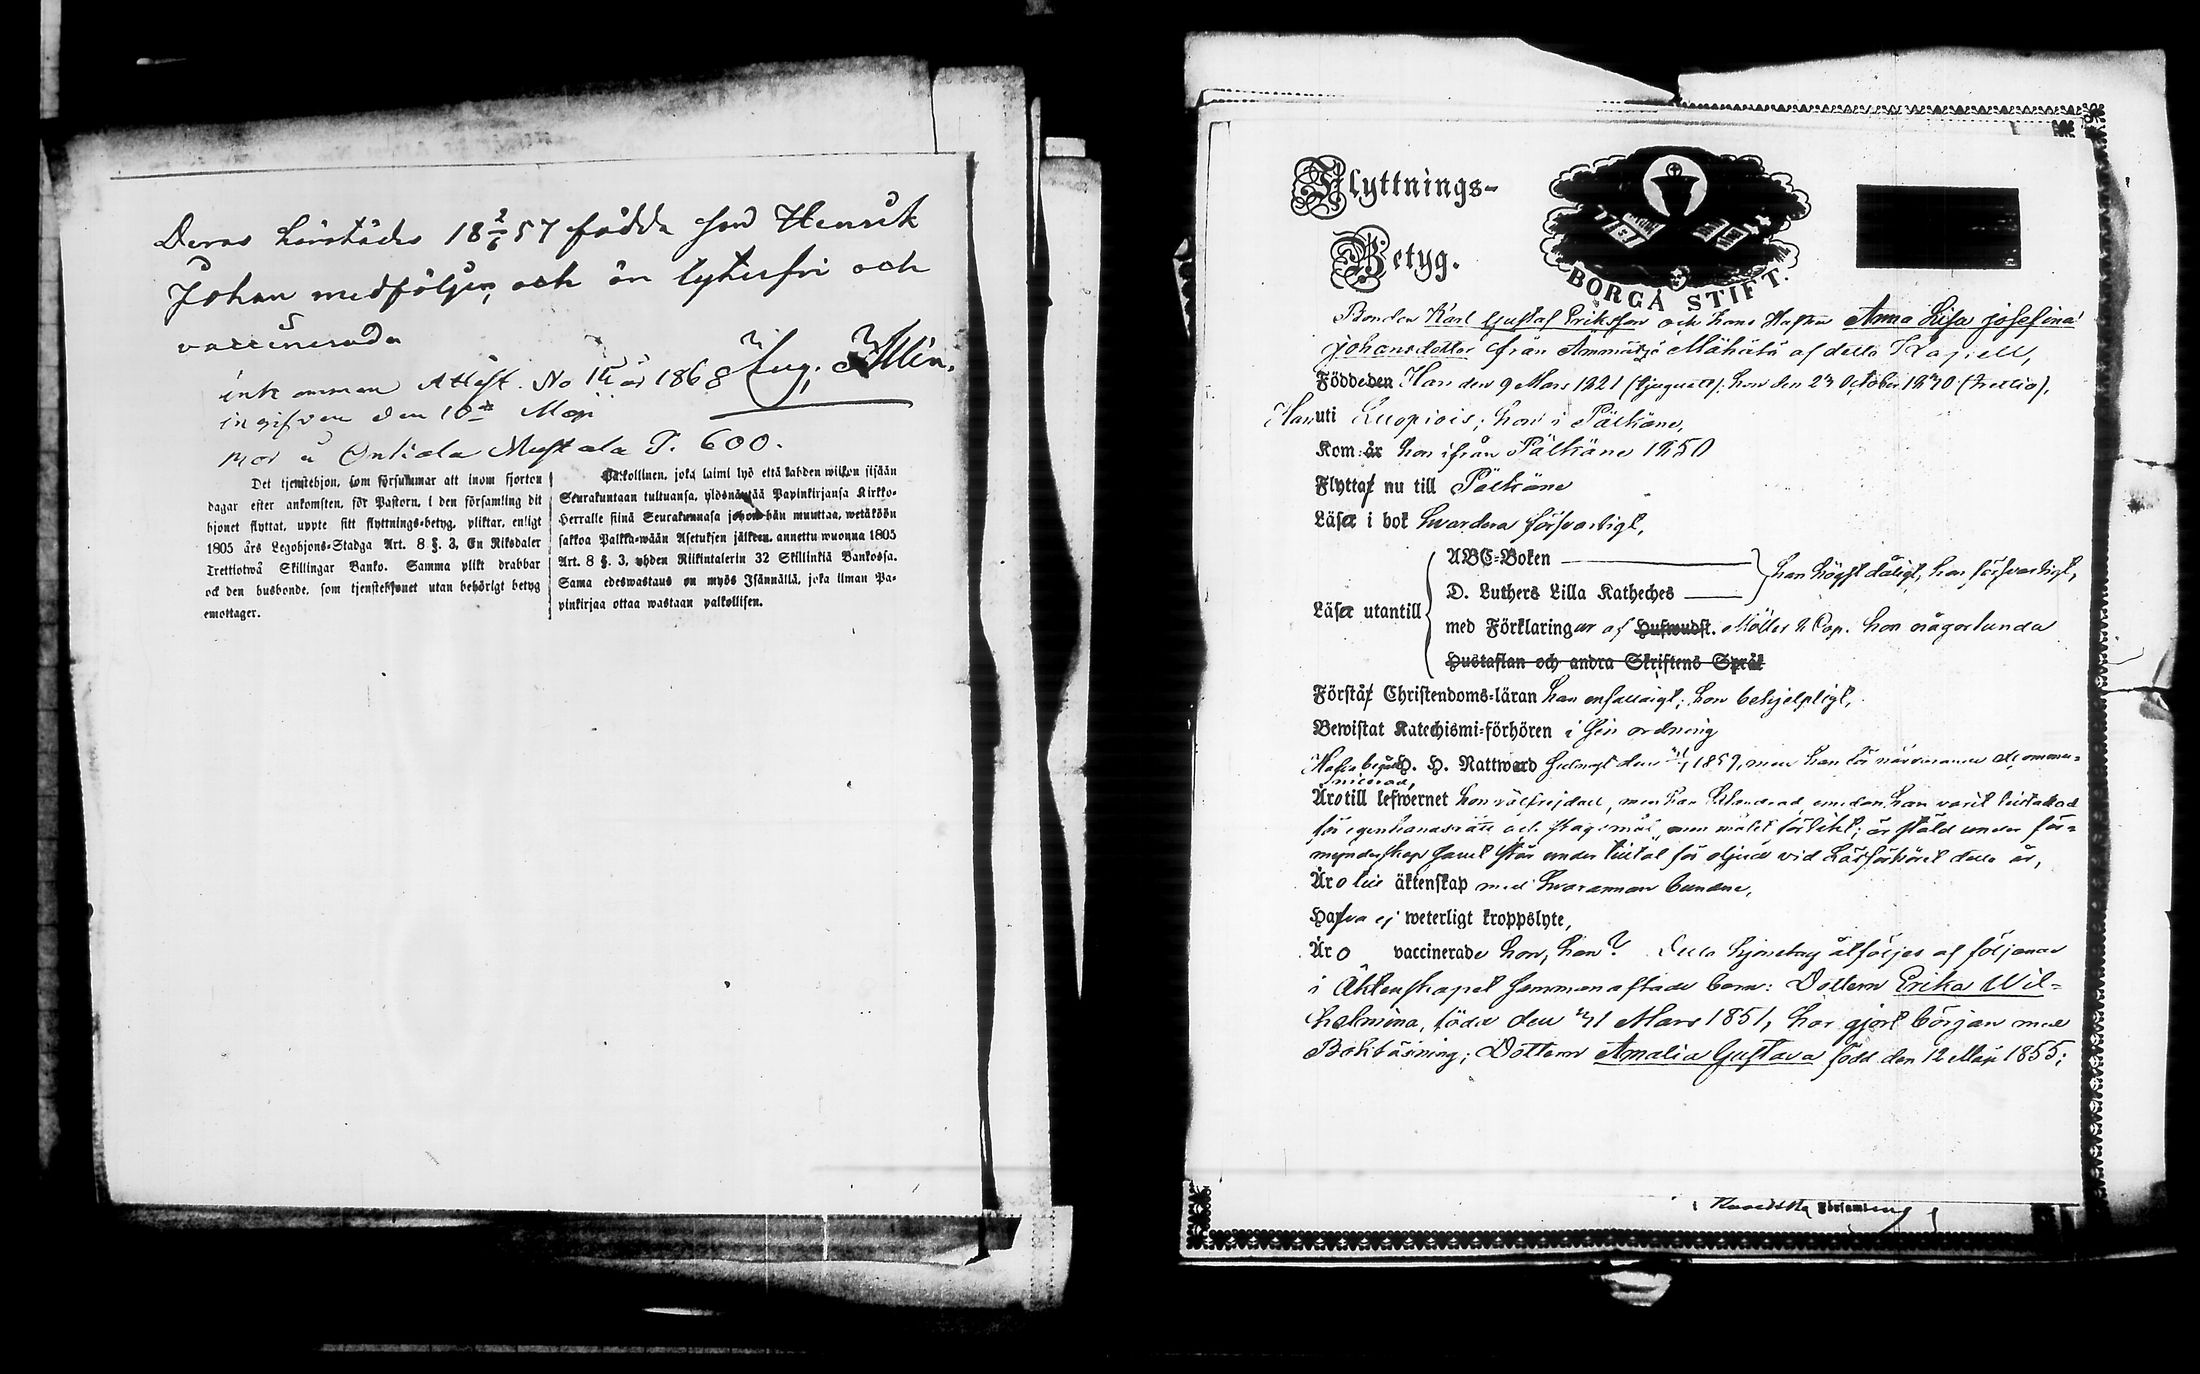 Deras härstädes 18 2/6 57 födda son Henrik
Johan medföljer, och är lytesfri och
vaccinerad
Aug.
inkommen Attest. No 15 år 1868
ingifven den 10de Maji
Mor å Onkiala Mustala P. 600.
Det tjenstehjon, som försummar att inom fjorton
dagar efter ankomsten, för Pastorn, i den församling dit
hjonet flyttat, uppte sitt flyttnings-betyg, pliktar, enligt
1805 års Legohjons-Stadga Art. 8 §. 3, En Riksdaler
Trettiotwå Skillingar Banko. Samma plikt drabbar
ock den husbonde, som tjenstehjonet utan behörigt betyg
emottager.
Palkollinen, joka laimi lyö että kahden wiikon sisään
Seurakuntaan tultuansa, ylösnäyttää Papinkirjansa Kirkko-
Herralle siinä Seurakunnasa johon hän muuttaa, wetäköön
sakkoa Palkka-wään Asetuksen jälkeen, annettu wuonna 1805
Art. 8 §. 3, yhden Riikintalerin 32 Skillinkiä Bankossa.
Sama edeswastaus on myös Isännällä, joka ilman Pa-
pinkirjaa ottaa wastaan palkollisen.
Flyttnings-
Betyg.
BORGÅ STIFT.
Bonden Karl Gustaf Eriksson och hans Hustru Anna Lisa Josefina
Johansdotter från Ammätsä Mähölä af detta Kapell,
Födde den Han den 9 Mars 1821 (tjuguett); hon den 27 October 1830 (trettio),
Han uti Luopiois; hon i Pälkäne,
Kom år hon ifrån Pälkäne 1850
Flyttat nu till Pälkäne
Läser i bok hvardera försvarligt,
ABC-Boken
D. Luthers Lilla Katheches
han högst dåligt, hon försvarligt,
Läser utantill
med Förklaringar af Hufwudst. Möller 2 Cap. hon någorlunda
Hustaflan och andra Skriftens Språk
Förstår Christendoms-läran han enfaldigt; hon behjelpligt,
Bewistat Katechismi-förhören i sin ordning
Hafva begått H. H. Nattward 1857, men han
Äro till lefwernet hon välfrejdad, men han emedan han varit tilltalad
mynderskap samt står under tilltal för oljud vid Läsförhöret detta år,
Äro till äktenskap med hvarannan bundne,
Hafva ej weterligt kroppslyte,
Äro vaccinerade hon, han? Detta hjonelag åtföljes af följande
i Äktenskapet sammanaflade barn: Dottern Erika Wil-
helmina, född den 21 Mars 1851, har gjort början med
Bokläsning; Dottern Amalia Gustava född den 12 Maji 1855;
församling